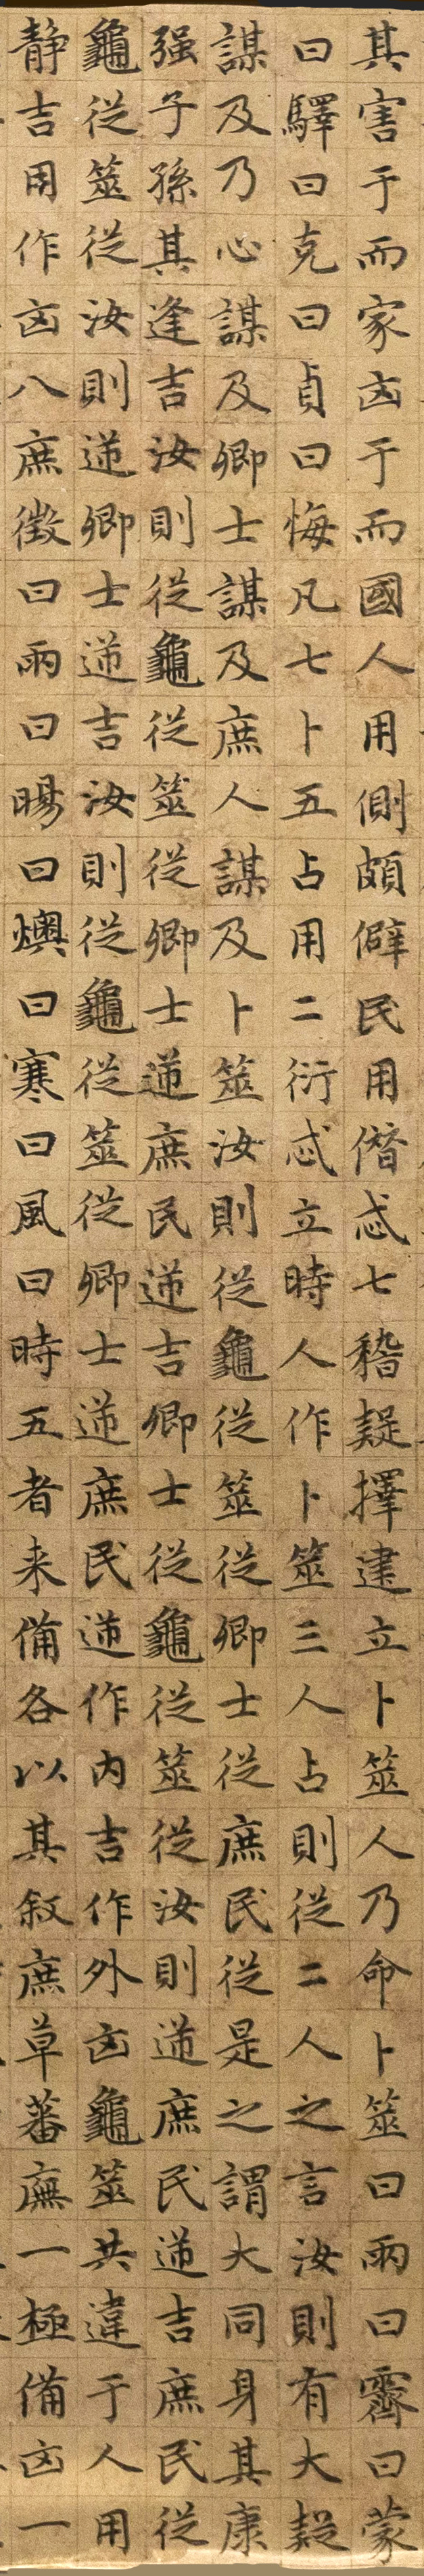 其害于而家凶于而國人用側頗僻民用僭忒七稽疑擇建立卜筮人乃命卜筮曰雨曰霽曰蒙
曰驛曰克曰貞曰悔凡七卜五占用二衍忒立時人作卜筮三人占則從二人之言汝則有大疑
謀及乃心謀及卿士謀及庶人謀及卜筮汝則從龜從筮從卿士從庶民從是之謂大同身其康
强子孫其逢吉汝則從龜從筮從卿士逆庶民逆吉卿士從龜從筮從汝則逆庶民逆吉庶民從
龜從筮從汝則逆卿士逆吉汝則從龜從筮從卿士逆庶民逆作内吉作外凶龜筮共違于人用
静吉用作凶八庶徵曰雨曰暘曰燠曰寒曰風曰時五者来備各以其叙庶草蕃廡一極備凶一